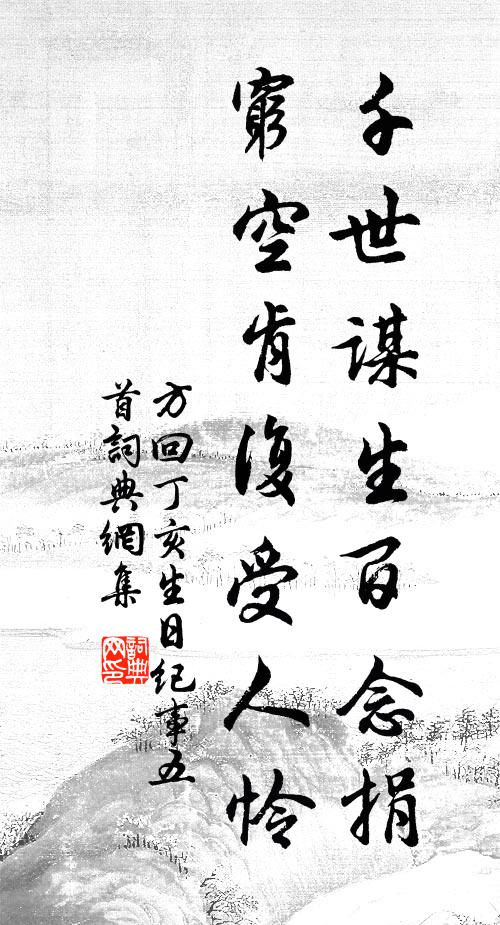 千世謀生百念捐
窮空肯復受人憐
方回丁亥生日纪事五
首詞典網集
詞典网印